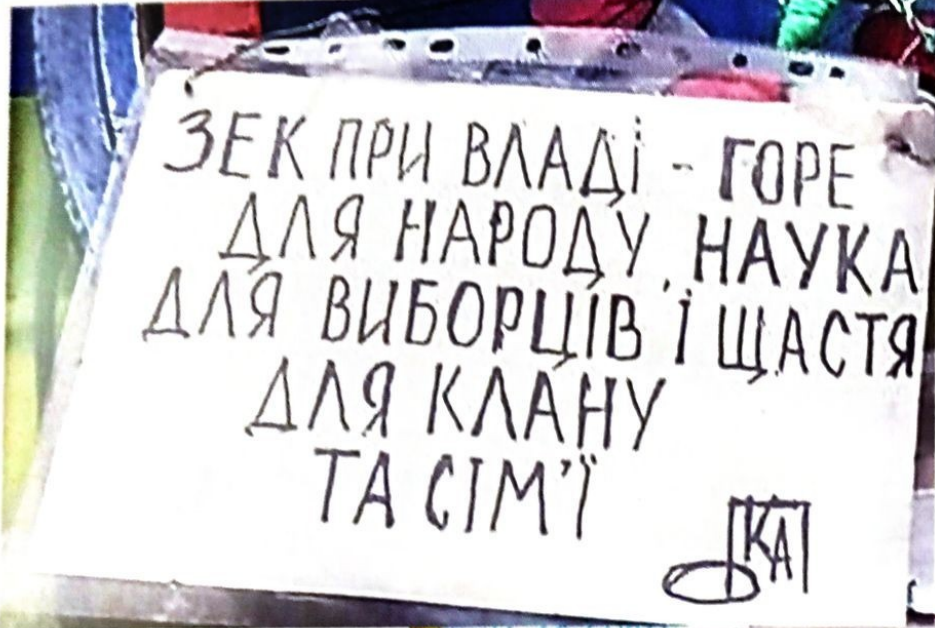 ЗЕК ПРИ ВЛАДІ - ГОРЕ
ДЛЯ НАРОДУ, НАУКА
ДЛЯ ВИБОРЦІВ І ЩАСТЯ
ДЛЯ КЛАНУ
ТА СІМ'Ї
КАП